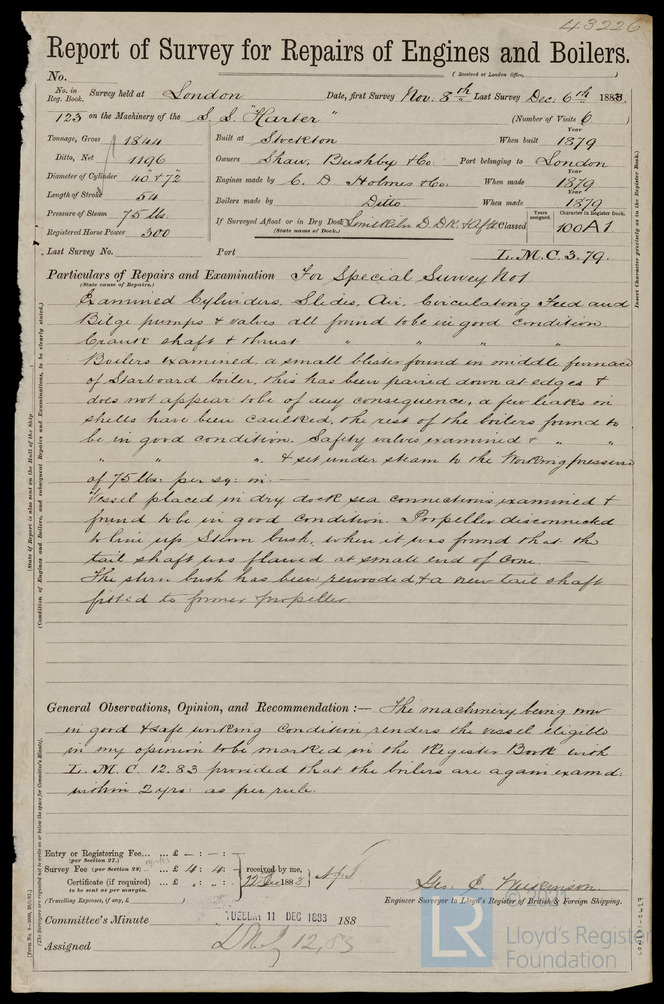 43226
Report of Survey for Repairs of Engines and Boilers.
(Received at London Office, )
No.
No. in Reg. Book. Survey held at London Date, first Survey Nov. 8th Last Survey Dec: 6th 1883.
123 on the Machinery of the S.S. "Harter" (Number of Visits 6
Tonnage, Gross 1844 Built at Stockton When built Year 1879
Ditto, Net 1196 Owners Shaw, Bushby & Co. Port belonging to London
Diameter of Cylinder 40" & 72" Engines made by C. D. Holmes & Co. When made Year 1879
Length of Stroke 54 Boilers made by Ditto When made Year 1879
Pressure of Steam 75 lbs. If Surveyed Afloat or in Dry Dock Limekiln D. Dk. & Aft. Classed Years assigned. Character in Register Book. 100A1
Registered Horse Power 300 (State name of Dock.)
Last Survey No. Port L.M.C. 3.79.
Particulars of Repairs and Examination For Special Survey No 1
(State cause of Repairs.)
Examined Cylinders, Slides, Air, Circulating Feed and
Bilge pumps & valves all found to be in good condition.
Crank shaft & thrust " " " "
Boilers examined a small blister found in middle furnace
of Starboard boiler, this has been paired down at edges &
does not appear to be of any consequence, a few leaks on
shells have been caulked, the rest of the boilers found to
be in good condition. Safety valves examined & " "
" " " & set under steam to the working pressure
of 75 lbs: per sq: in.
Vessel placed in dry dock sea connections examined &
found to be in good condition. Propeller disconnected
to line up Stern bush, when it was found that the
tail shaft was flawed at small end of Cone.
The stern bush has been rewooded & a new tail shaft
fitted to former propeller.
General Observations, Opinion, and Recommendation :— The machinery being now
in good & safe working condition renders the vessel eligible
in my opinion to be marked in the Register Book with
L.M.C. 12.83 provided that the boilers are again examd:
within 2 yrs: as per rule.
Entry or Registering Fee... ... £ — : — :
(per Section 27.)
Survey Fee (per Section 28) ... £ 4 : 4 : received by me,
Certificate (if required) ... £ : : 22 Dec 1883
to be sent as per margin.
(Travelling Expenses, if any, £ )
Engineer Surveyor to Lloyd's Register of British & Foreign Shipping.
Committee's Minute TUESDAY 11 DEC 1883 188
Assigned L.M.C. 12,83
Insert Character precisely as in the Register Book.)
(State if Report is also sent on the Hull of the Ship
(Condition of Engines and Boilers, and subsequent Repairs and Examinations, to be clearly stated.)
© 2021
LR
Lloyd's Register
Foundation